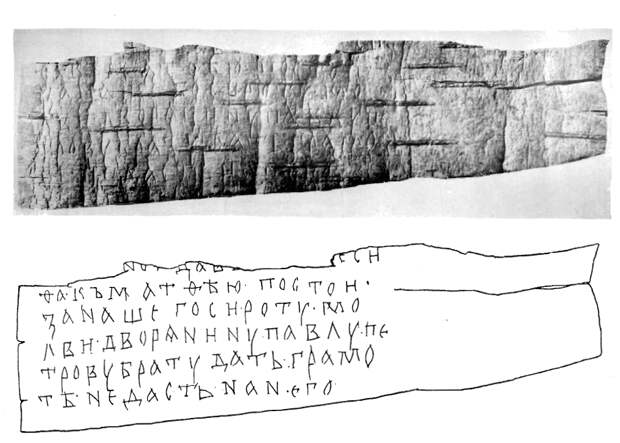 ЕСИ
ѲА·КЪ МАТѲѢЮ· ПОСТОИ·
ЗАНАШЕГОСИРОТУ·МО
ЛВИ·ДВОРѦНИНУ·ПАВЛУ·ПЕ
ТРОВУБРАТУ ДАТЬ·ГРАМО
ТѢ·НЕДАСТЬ·НАН·ЕГО